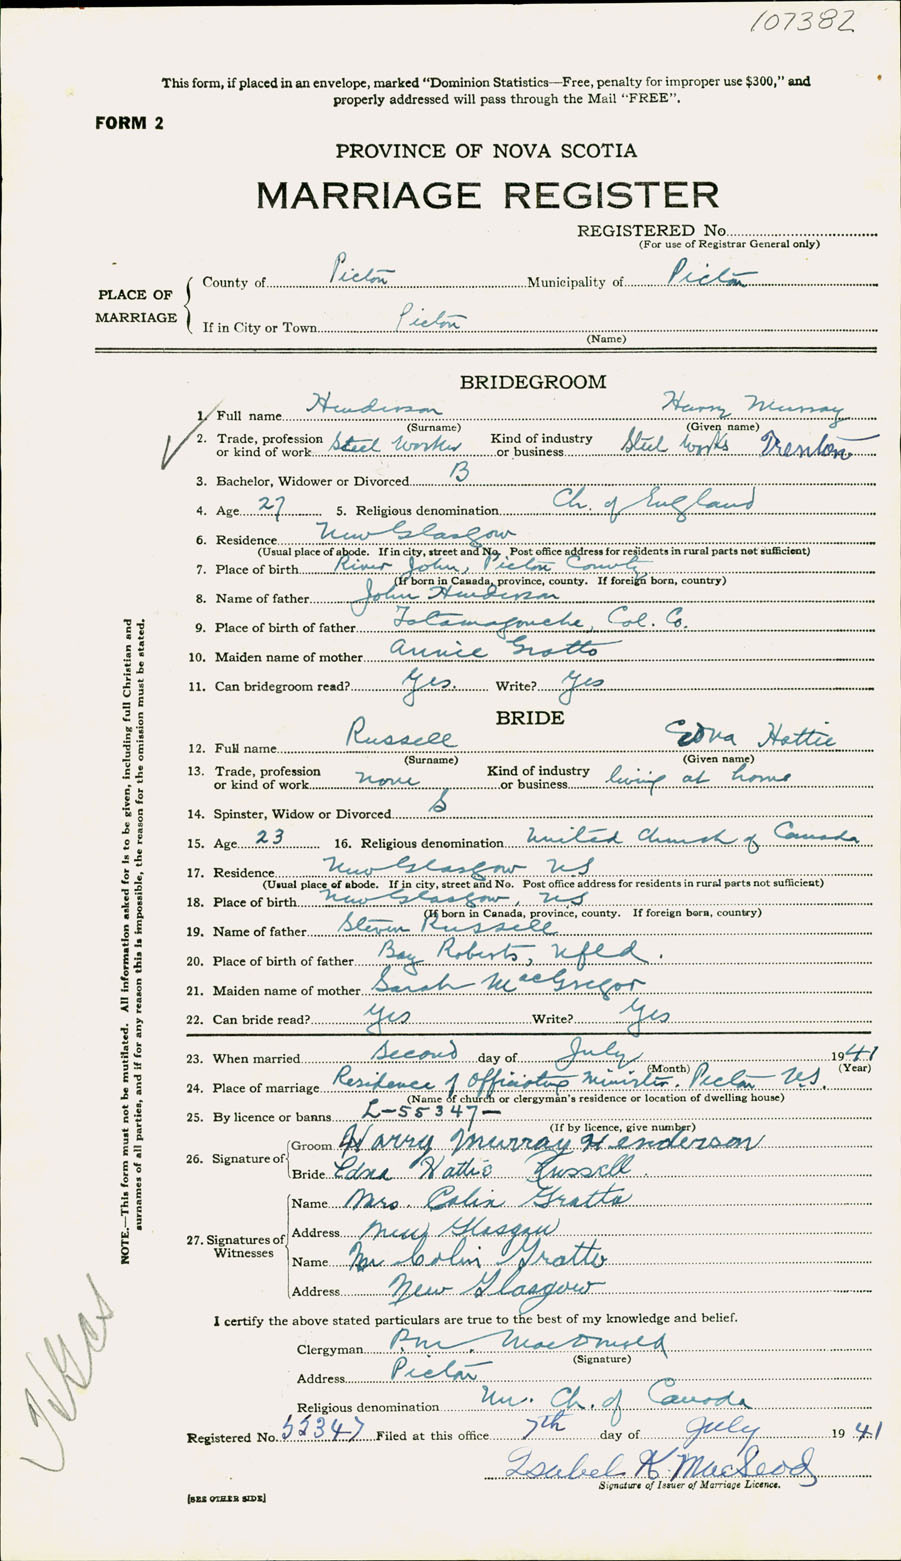 107382
This form, if placed in an envelope, marked "Dominion Statistics—Free, penalty for improper use $300," and
properly addressed will pass through the Mail "FREE".
FORM 2
PROVINCE OF NOVA SCOTIA
MARRIAGE REGISTER
REGISTERED No.
(For use of Registrar General only)
PLACE OF MARRIAGE
County of Pictou Municipality of Pictou
If in City or Town Pictou
(Name)
BRIDEGROOM
1. Full name Henderson Harry Murray
(Surname) (Given name)
2. Trade, profession or kind of work Steel Worker Kind of industry or business Steel Works Trenton
3. Bachelor, Widower or Divorced B
4. Age 27 5. Religious denomination Ch. of England
6. Residence New Glasgow
(Usual place of abode. If in city, street and No. Post office address for residents in rural parts not sufficient)
7. Place of birth River John, Pictou County
(If born in Canada, province, county. If foreign born, country)
8. Name of father John Henderson
9. Place of birth of father Tatamagouche, Col. Co.
10. Maiden name of mother Annie Gratto
11. Can bridegroom read? Yes. Write? Yes
BRIDE
12. Full name Russell Edna Hattie
(Surname) (Given name)
13. Trade, profession or kind of work none Kind of industry or business living at home
14. Spinster, Widow or Divorced S
15. Age 23 16. Religious denomination United Church of Canada
17. Residence New Glasgow NS
(Usual place of abode. If in city, street and No. Post office address for residents in rural parts not sufficient)
18. Place of birth New Glasgow, NS
(If born in Canada, province, county. If foreign born, country)
19. Name of father Steven Russell
20. Place of birth of father Bay Roberts, Nfld.
21. Maiden name of mother Sarah MacGregor
22. Can bride read? Yes Write? Yes
23. When married Second day of July 1941
(Month) (Year)
24. Place of marriage Residence of Officiating Minister. Pictou N.S.
(Name of church or clergyman's residence or location of dwelling house)
25. By licence or banns L-55347-
(If by licence, give number)
26. Signature of
Groom Harry Murray Henderson
Bride Edna Hattie Russell.
27. Signatures of Witnesses
Name Mrs. Colin Gratto
Address New Glasgow
Name Mr Colin Gratto
Address New Glasgow
I certify the above stated particulars are true to the best of my knowledge and belief.
Clergyman MacDonald
(Signature)
Address Pictou
Religious denomination Un. Ch. of Canada
Registered No. 55347 Filed at this office 7th day of July 1941
Isabel K. MacLeod
Signature of Issuer of Marriage Licence.
[SEE OTHER SIDE]
NOTE.—This form must not be mutilated. All information asked for is to be given, including full Christian and
surnames of all parties, and if for any reason this is impossible, the reason for the omission must be stated.